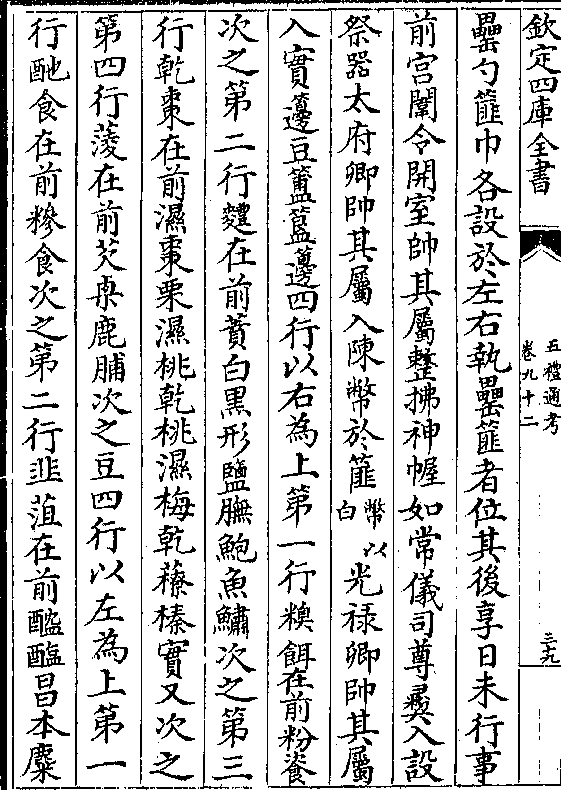 欽定四庫全書
五禮通考
卷九十二
三九
罍勺篚巾各設於左右執罍篚者位其後享日未行事
前宫闈令開室帥其屬整拂神幄如常儀司尊彞入設
祭器太府卿帥其屬入陳幣於篚幣以白光禄卿帥其屬
入實籩豆簠簋籩四行以右為上第一行糗餌在前粉餈
次之第二行麷在前蕡白黑形鹽膴鮑魚鱐次之第三
行乾棗在前濕棗栗濕桃乾桃濕梅乾䕩榛實又次之
第四行蔆在前芡栗鹿脯次之豆四行以左為上第一
行酏食在前糝食次之第二行韭菹在前醓醢昌本麋